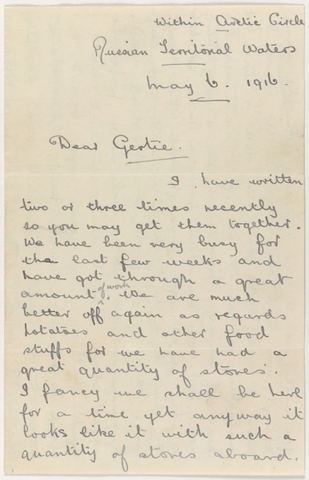 Within Arctic Circle
Russian Territorial Waters
May 6. 1916.
Dear Gertie.
I have written
two or three times recently
so you may get them together.
We have been very busy for
the last few weeks and
have got through a great
amount of work. We are much
better off again as regards
potatoes and other food
stuffs for we have had a
great quantity of stores.
I fancy we shall be here
for a time yet anyway it
looks like it with such a
quantity of stores aboard.